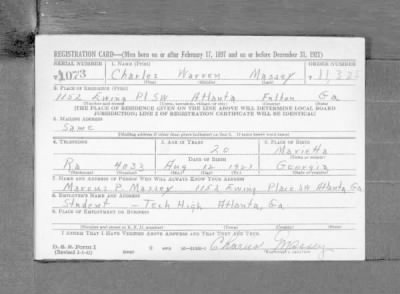 REGISTRATION CARD—(Men born on or after February 17, 1897 and on or before December 31, 1921)
SERIAL NUMBER 1. NAME (Print) ORDER NUMBER
1073 Charles Warren Massey 11323
2. PLACE OF RESIDENCE (Print)
1152 Ewing Pl SW Atlanta Fulton Ga
(Number and street) (Town, township, village, or city) (County) (State)
[THE PLACE OF RESIDENCE GIVEN ON THE LINE ABOVE WILL DETERMINE LOCAL BOARD
JURISDICTION; LINE 2 OF REGISTRATION CERTIFICATE WILL BE IDENTICAL]
3. MAILING ADDRESS
Same
[Mailing address if other than place indicated on line 2. If same insert word same]
4. TELEPHONE 5. AGE IN YEARS 6. PLACE OF BIRTH
20 Marietta
DATE OF BIRTH (Town or county)
Ra 4033 Aug 12 1921 Georgia
7. NAME AND ADDRESS OF PERSON WHO WILL ALWAYS KNOW YOUR ADDRESS
Marcus P. Massey 1152 Ewing Place SW Atlanta Ga
8. EMPLOYER'S NAME AND ADDRESS
Student - Tech High Atlanta, Ga
9. PLACE OF EMPLOYMENT OR BUSINESS
(Number and street or R. F. D. number) (Town) (County) (State)
I AFFIRM THAT I HAVE VERIFIED ABOVE ANSWERS AND THAT THEY ARE TRUE.
D. S. S. Form 1 Charles Massey